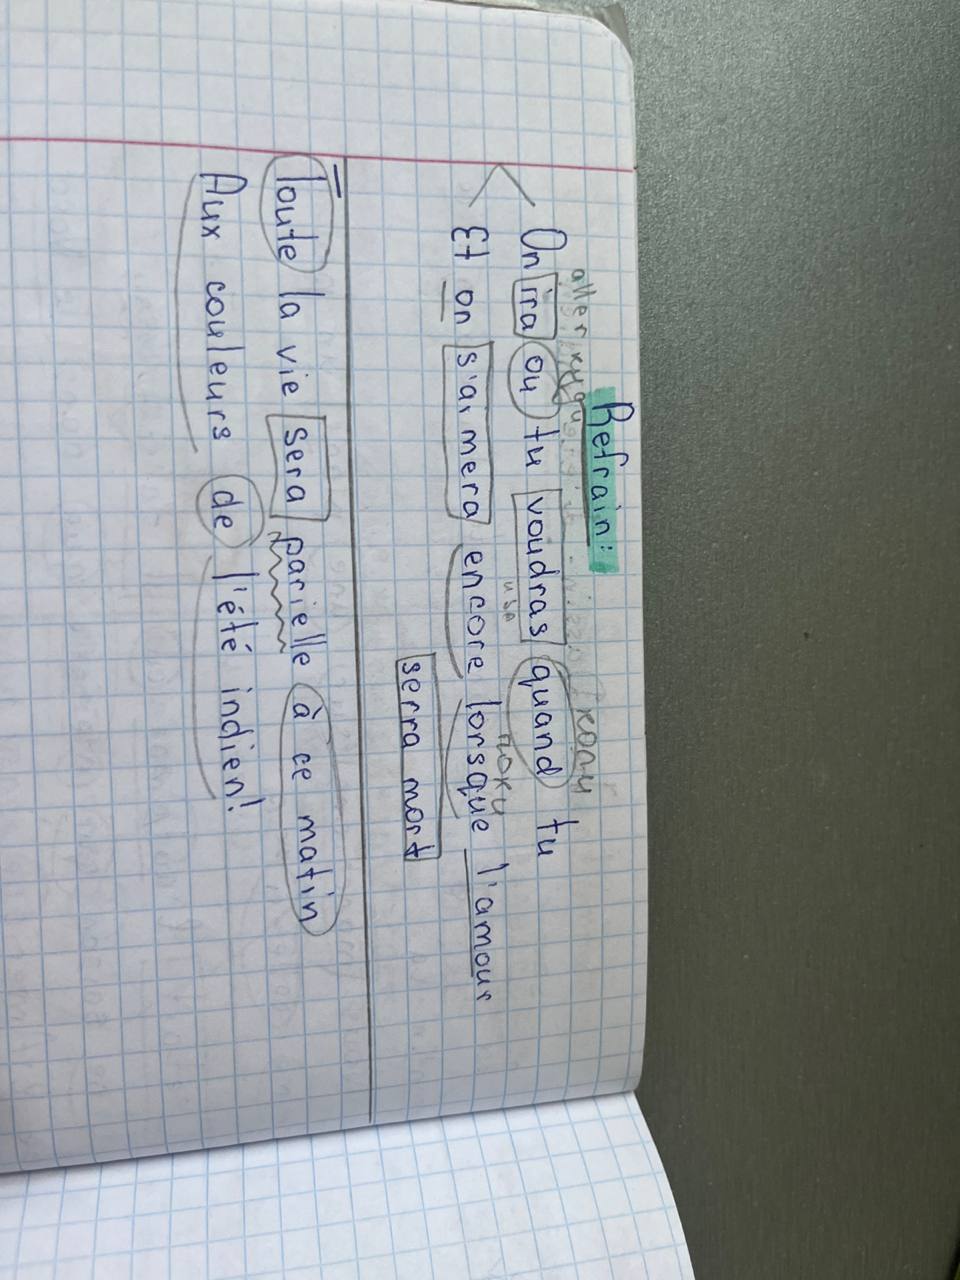 Refrain:
aller куди коли
On ira ou tu voudras quand tu
Et on s'aimera encore lorsque l'amour
поки
serra mort
Toute la vie Sera parielle à ce matin
Aux couleurs de l'été indien!